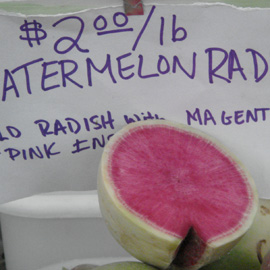 $2.00/lb
ATERMELON RAD
LD RADISH with MAGENT
PINK IN